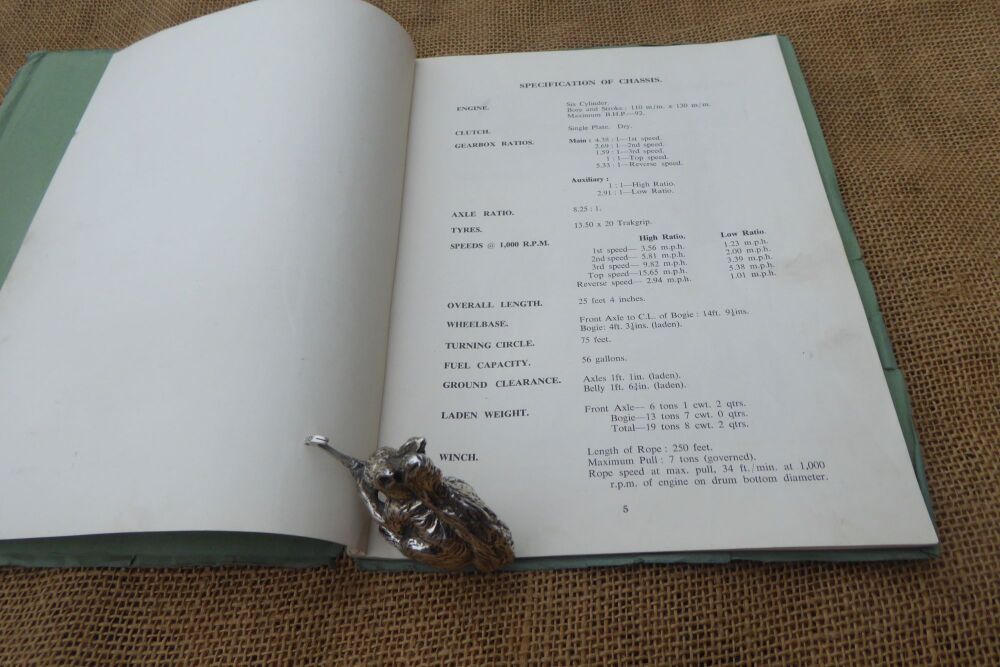 SPECIFICATION OF CHASSIS.
ENGINE. Six Cylinder.
Bore and Stroke: 110 m/m. x 130 m/m.
Maximum B.H.P.—92.
CLUTCH. Single Plate. Dry.
GEARBOX RATIOS. Main: 4.38 : 1—1st speed.
2.69 : 1—2nd speed.
1.59 : 1—3rd speed.
1 : 1—Top speed.
5.33 : 1—Reverse speed.
Auxiliary:
1 : 1—High Ratio.
2.91 : 1—Low Ratio.
AXLE RATIO. 8.25 : 1.
TYRES. 13.50 x 20 Trakgrip.
SPEEDS @ 1,000 R.P.M. High Ratio. Low Ratio.
1st speed— 3.56 m.p.h. 1.23 m.p.h.
2nd speed— 5.81 m.p.h. 2.00 m.p.h.
3rd speed— 9.82 m.p.h. 3.39 m.p.h.
Top speed—15.65 m.p.h. 5.38 m.p.h.
Reverse speed— 2.94 m.p.h. 1.01 m.p.h.
OVERALL LENGTH. 25 feet 4 inches.
WHEELBASE. Front Axle to C.L. of Bogie: 14ft. 9¼ins.
Bogie: 4ft. 3¼ins. (laden).
TURNING CIRCLE. 75 feet.
FUEL CAPACITY. 56 gallons.
GROUND CLEARANCE. Axles 1ft. 1in. (laden)
Belly 1ft. 6¾in. (laden).
LADEN WEIGHT. Front Axle— 6 tons 1 cwt. 2 qtrs.
Bogie—13 tons 7 cwt. 0 qtrs.
Total—19 tons 8 cwt. 2 qtrs.
WINCH. Length of Rope: 250 feet.
Maximum Pull: 7 tons (governed).
Rope speed at max. pull, 34 ft./min. at 1,000
r.p.m. of engine on drum bottom diameter.
5